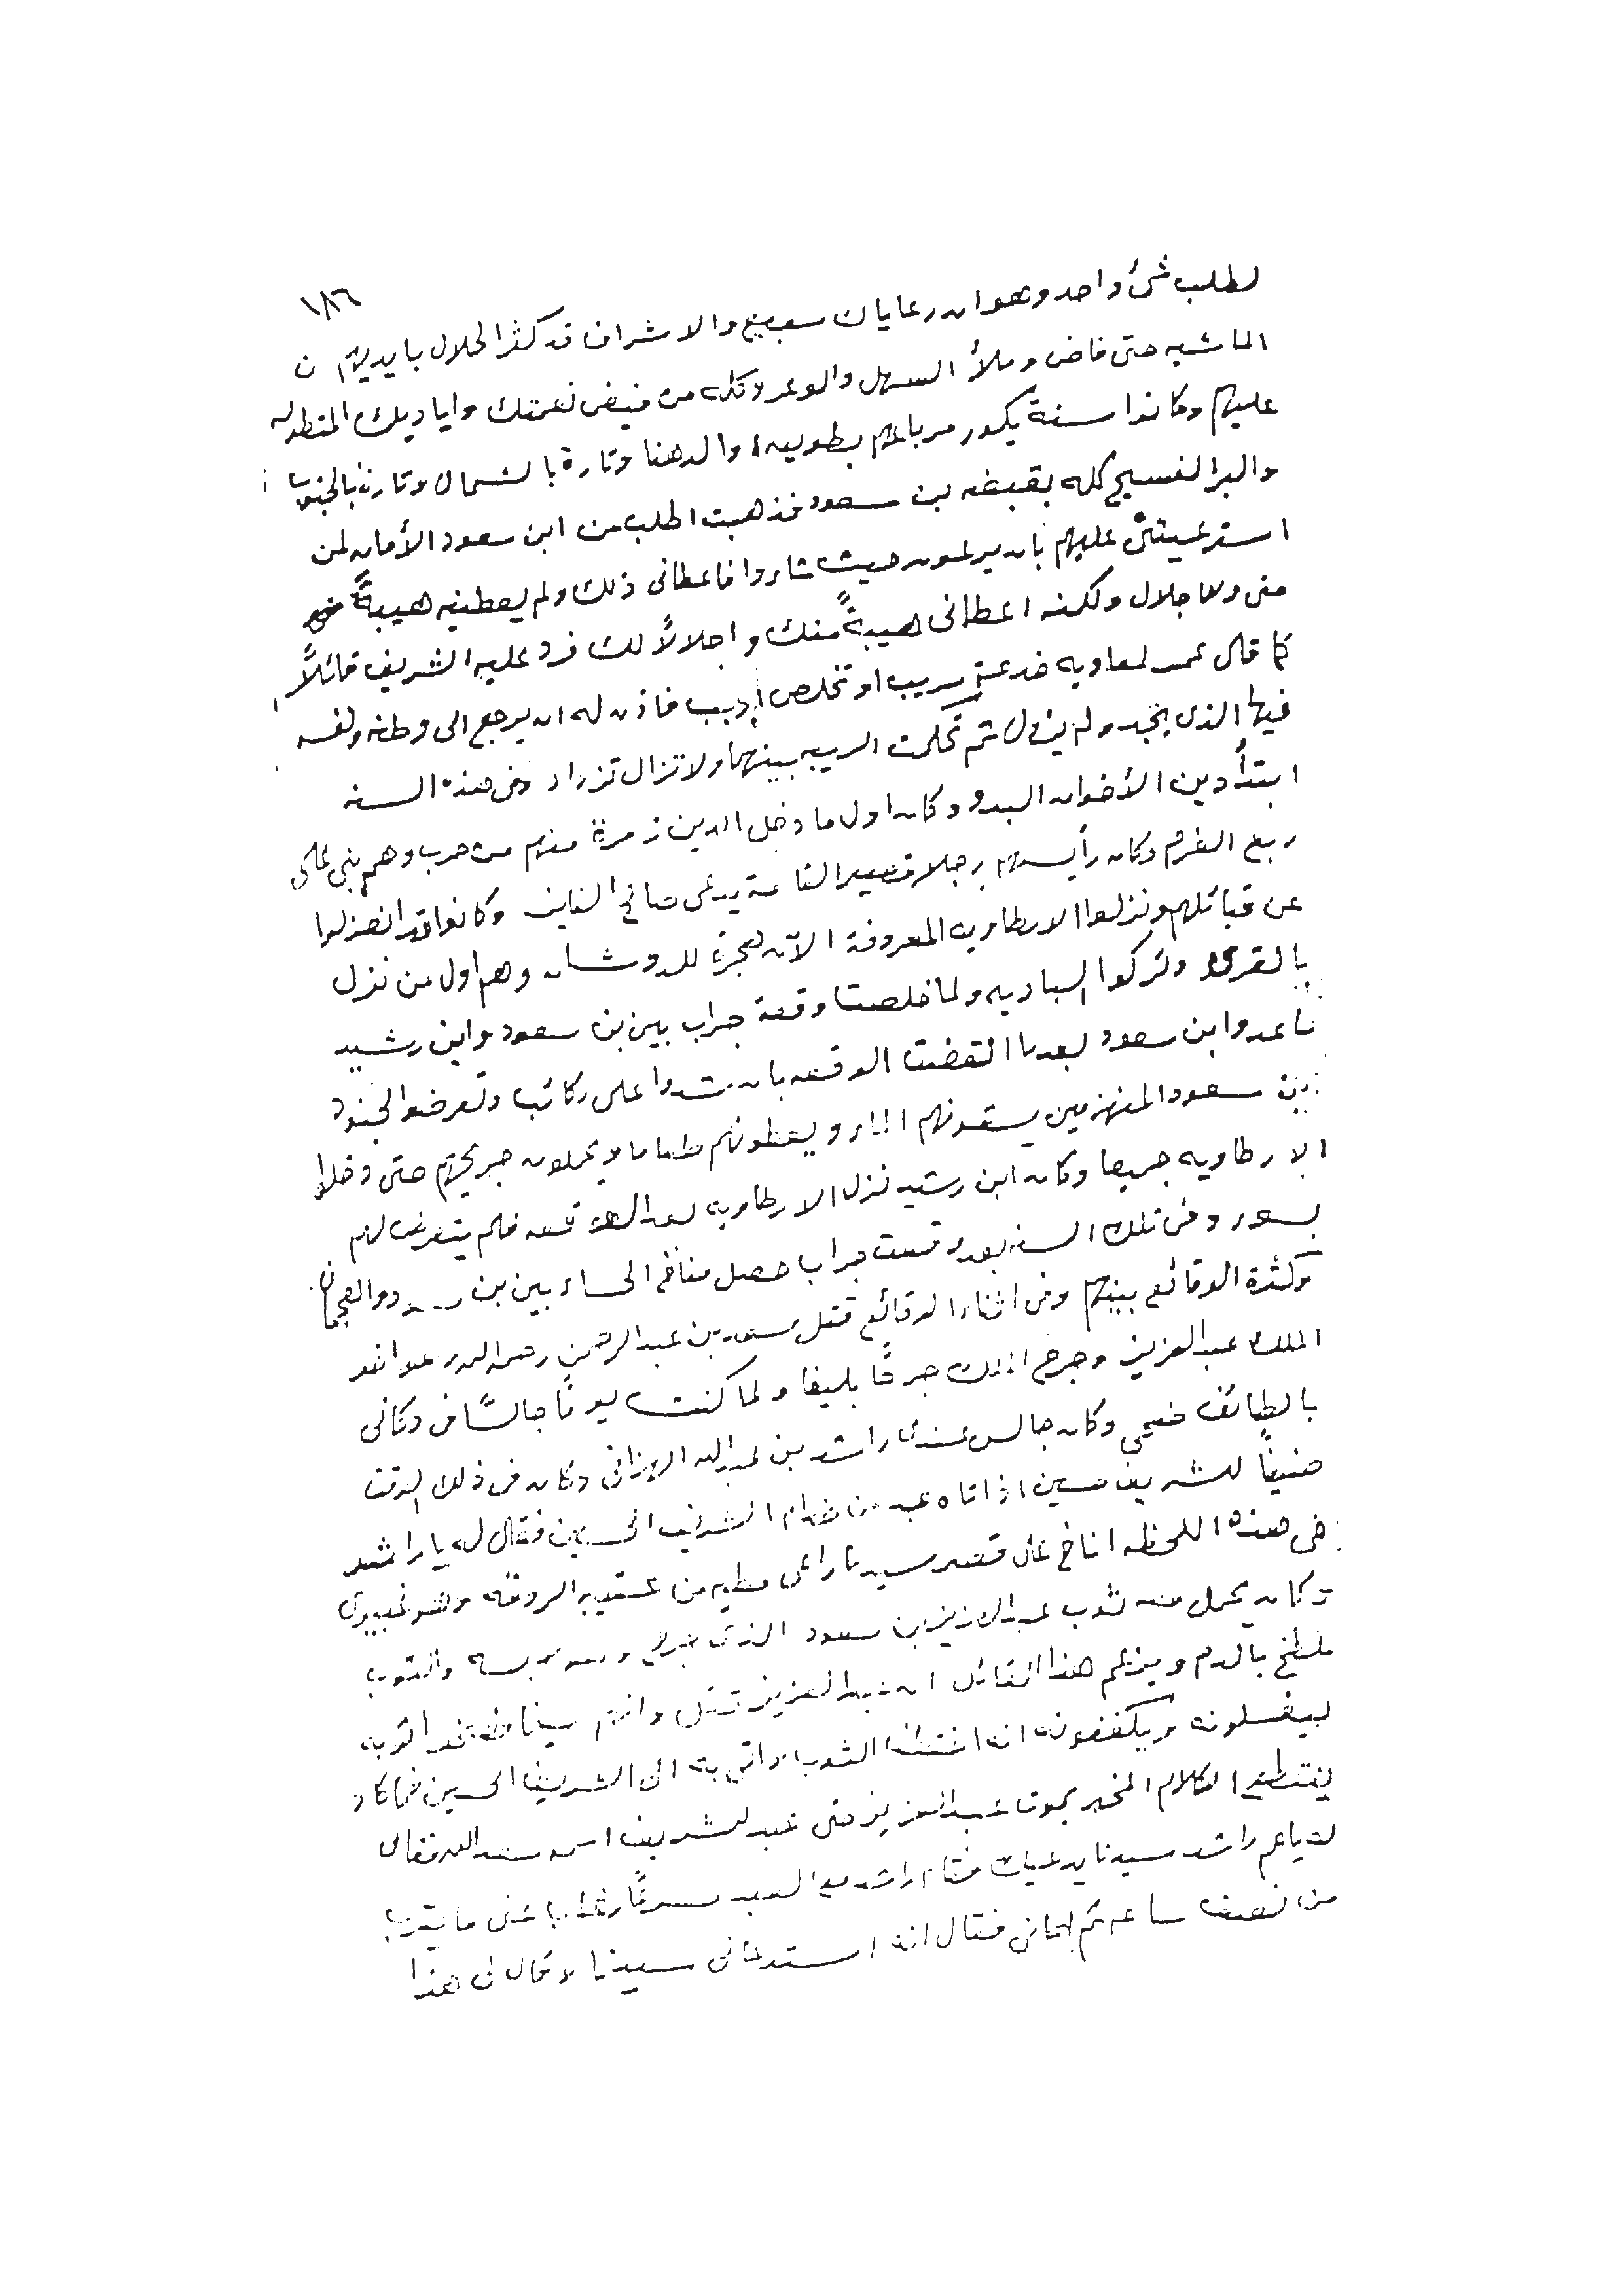 ١٨٦
لطلب شئ واحد وهو ان رعاياك سبيع والاشراف قد كثر الحلال بايديهم ن
الماشيه حتى فاض وملأ السهل والوعر وكله من فيض نعمتك واياديك المتطوله
عليهم وكانوا سنة يكون مرباعهم بطويه والدهنا وتارة بالشمال وتارة بالجنوب
والبر الفسيح كله بقبضه بن سعود فذهبت اطلب من ابن سعود الأمان لمن
استرعيتنى عليهم بان يرعون حيث شاروا فاعطانى ذلك ولم يعطنيه هيبةً
منى ولا اجلال ولكنه اعطانى هيبةً منك واجلالاً لك فرد عليه الشريف قائلاً
كما قال عمر لمعاويه خدعة اريب او تخلص اديب فاذن له ان يرجع الى وطنه ونفسه
فيها الذى يجد ولم يزول ثم تحكمت الريبه بينهما ولا تزال تزداد وفى هذه السنه
ابتدأ دين الأخوان البدو وكان اول ما دخل الدين زمرة منهم من حرب وهم بنى على
ربع الفرم وكان رأيسهم رجلا قصير القامة يدعى صالح وكانوا قد انعزلوا
عن قبائلهم ونزلوا الارطاويه المعروفة الآن هجرة للدوشان وهم اول من نزل
بالقرى وتركوا الباديه ولما خلصت وقعة جراب بين بن سعود وابن رشيد
ساعدوا ابن سعود بعدما انقضت الوقعه بان شدوا على ركائب وتعرضوا لجنود
بن سعود المنهزمين يسقونهم الماء ويعطونهم طعاما ويحملون جريحهم حتى دخلوا
الارطاويه جميعا وكان ابن رشيد نزل الارطاويه بعد الوقعه فلم يتعرض لهم
بسوء وفى تلك السنه بعد وقعت جراب حصل مناخ الحساء بين بن سعود والعجمان
وكثرة الوقائع بينهم وفى اثناء الوقائع قتل سعد بن عبد الرحمن رحمه الله وهو اخو
الملك عبد العزيز وجرح الملك جرحًا بليغا ولما كنت يومًا جالسًا فى دكانى
بالطائف ضحى وكان جالس عندى راشد بن عبد الله وكان فى ذلك الوقت
ضيفًا للشريف حسين اذ اتاه عبد من خدام الشريف الحسين فقال له يا راشد
فى هذه اللحظه اناخ على قصر سيدنا راعى مطيه من عتيبه الروقه وهو غبيوى
وكان يحمل معه ثوب عبد العزيز بن سعود الذى جرح وهو والثوب
ملطخ بالدم ويزعم هذا القائل ان عبد العزيز قتل وانهم
ليغسلونه ويكفنونه انه الثوب واتى به الى الشريف الحسين فما كاد
ينقطع الكلام المخبر بموت عبد العزيز حتى عبد للشريف اسمه سعد الله فقال
له ياعم راشد سيدنا يدعيك فقام راشد مع العبد مسرعًا عنى ما يقرب
من نصف ساعه ثم اتانى فقال انه استدعانى سيدنا وقال لى هذا